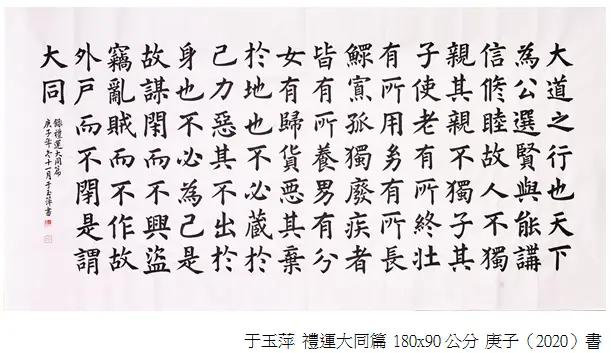 大道之行也天下
為公選賢與能講
信脩睦故人不獨
親其親不獨子其
子使老有所終壯
有所用幼有所長
鰥寡孤獨廢疾者
皆有所養男有分
女有歸貨惡其棄
於地也不必藏於
己力惡其不出於
身也不必為己是
故謀閉而不興盜
竊亂賊而不作故
外戶而不閉是謂
大同
錄禮運大同篇
庚子年冬十一月于玉萍書
于玉萍 禮運大同篇 180x90公分 庚子（2020）書